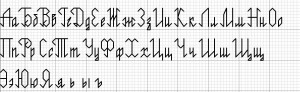 Аа Бб Вв Гг Дд Ее Жж Зз Ии Кк Лл Мм Нн Оо
Пп Рр Сс Тт Уу Фф Хх Цц Чч Шш Щщ
Ээ Юю Яя ь ы ъ